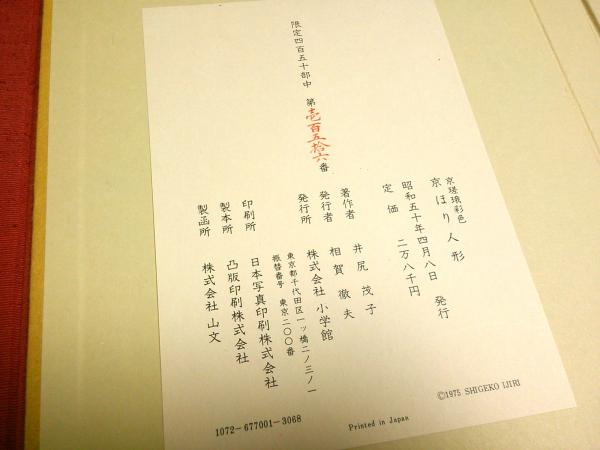 限定四百五十部中 第壱百五拾六番
京瑳琅彩色
京ほり人形
昭和五十年四月八日 発行
定価 二万八千円
著作者 井尻茂子
発行者 相賀徹夫
発行所 株式会社 小学館
東京都千代田区一ッ橋二ノ三ノ一
振替番号 東京二〇〇番
印刷所 日本写真印刷株式会社
製本所 凸版印刷株式会社
製函所 株式会社 山文
©1975 SHIGEKO IJIRI
Printed in Japan
1072-677001-3068